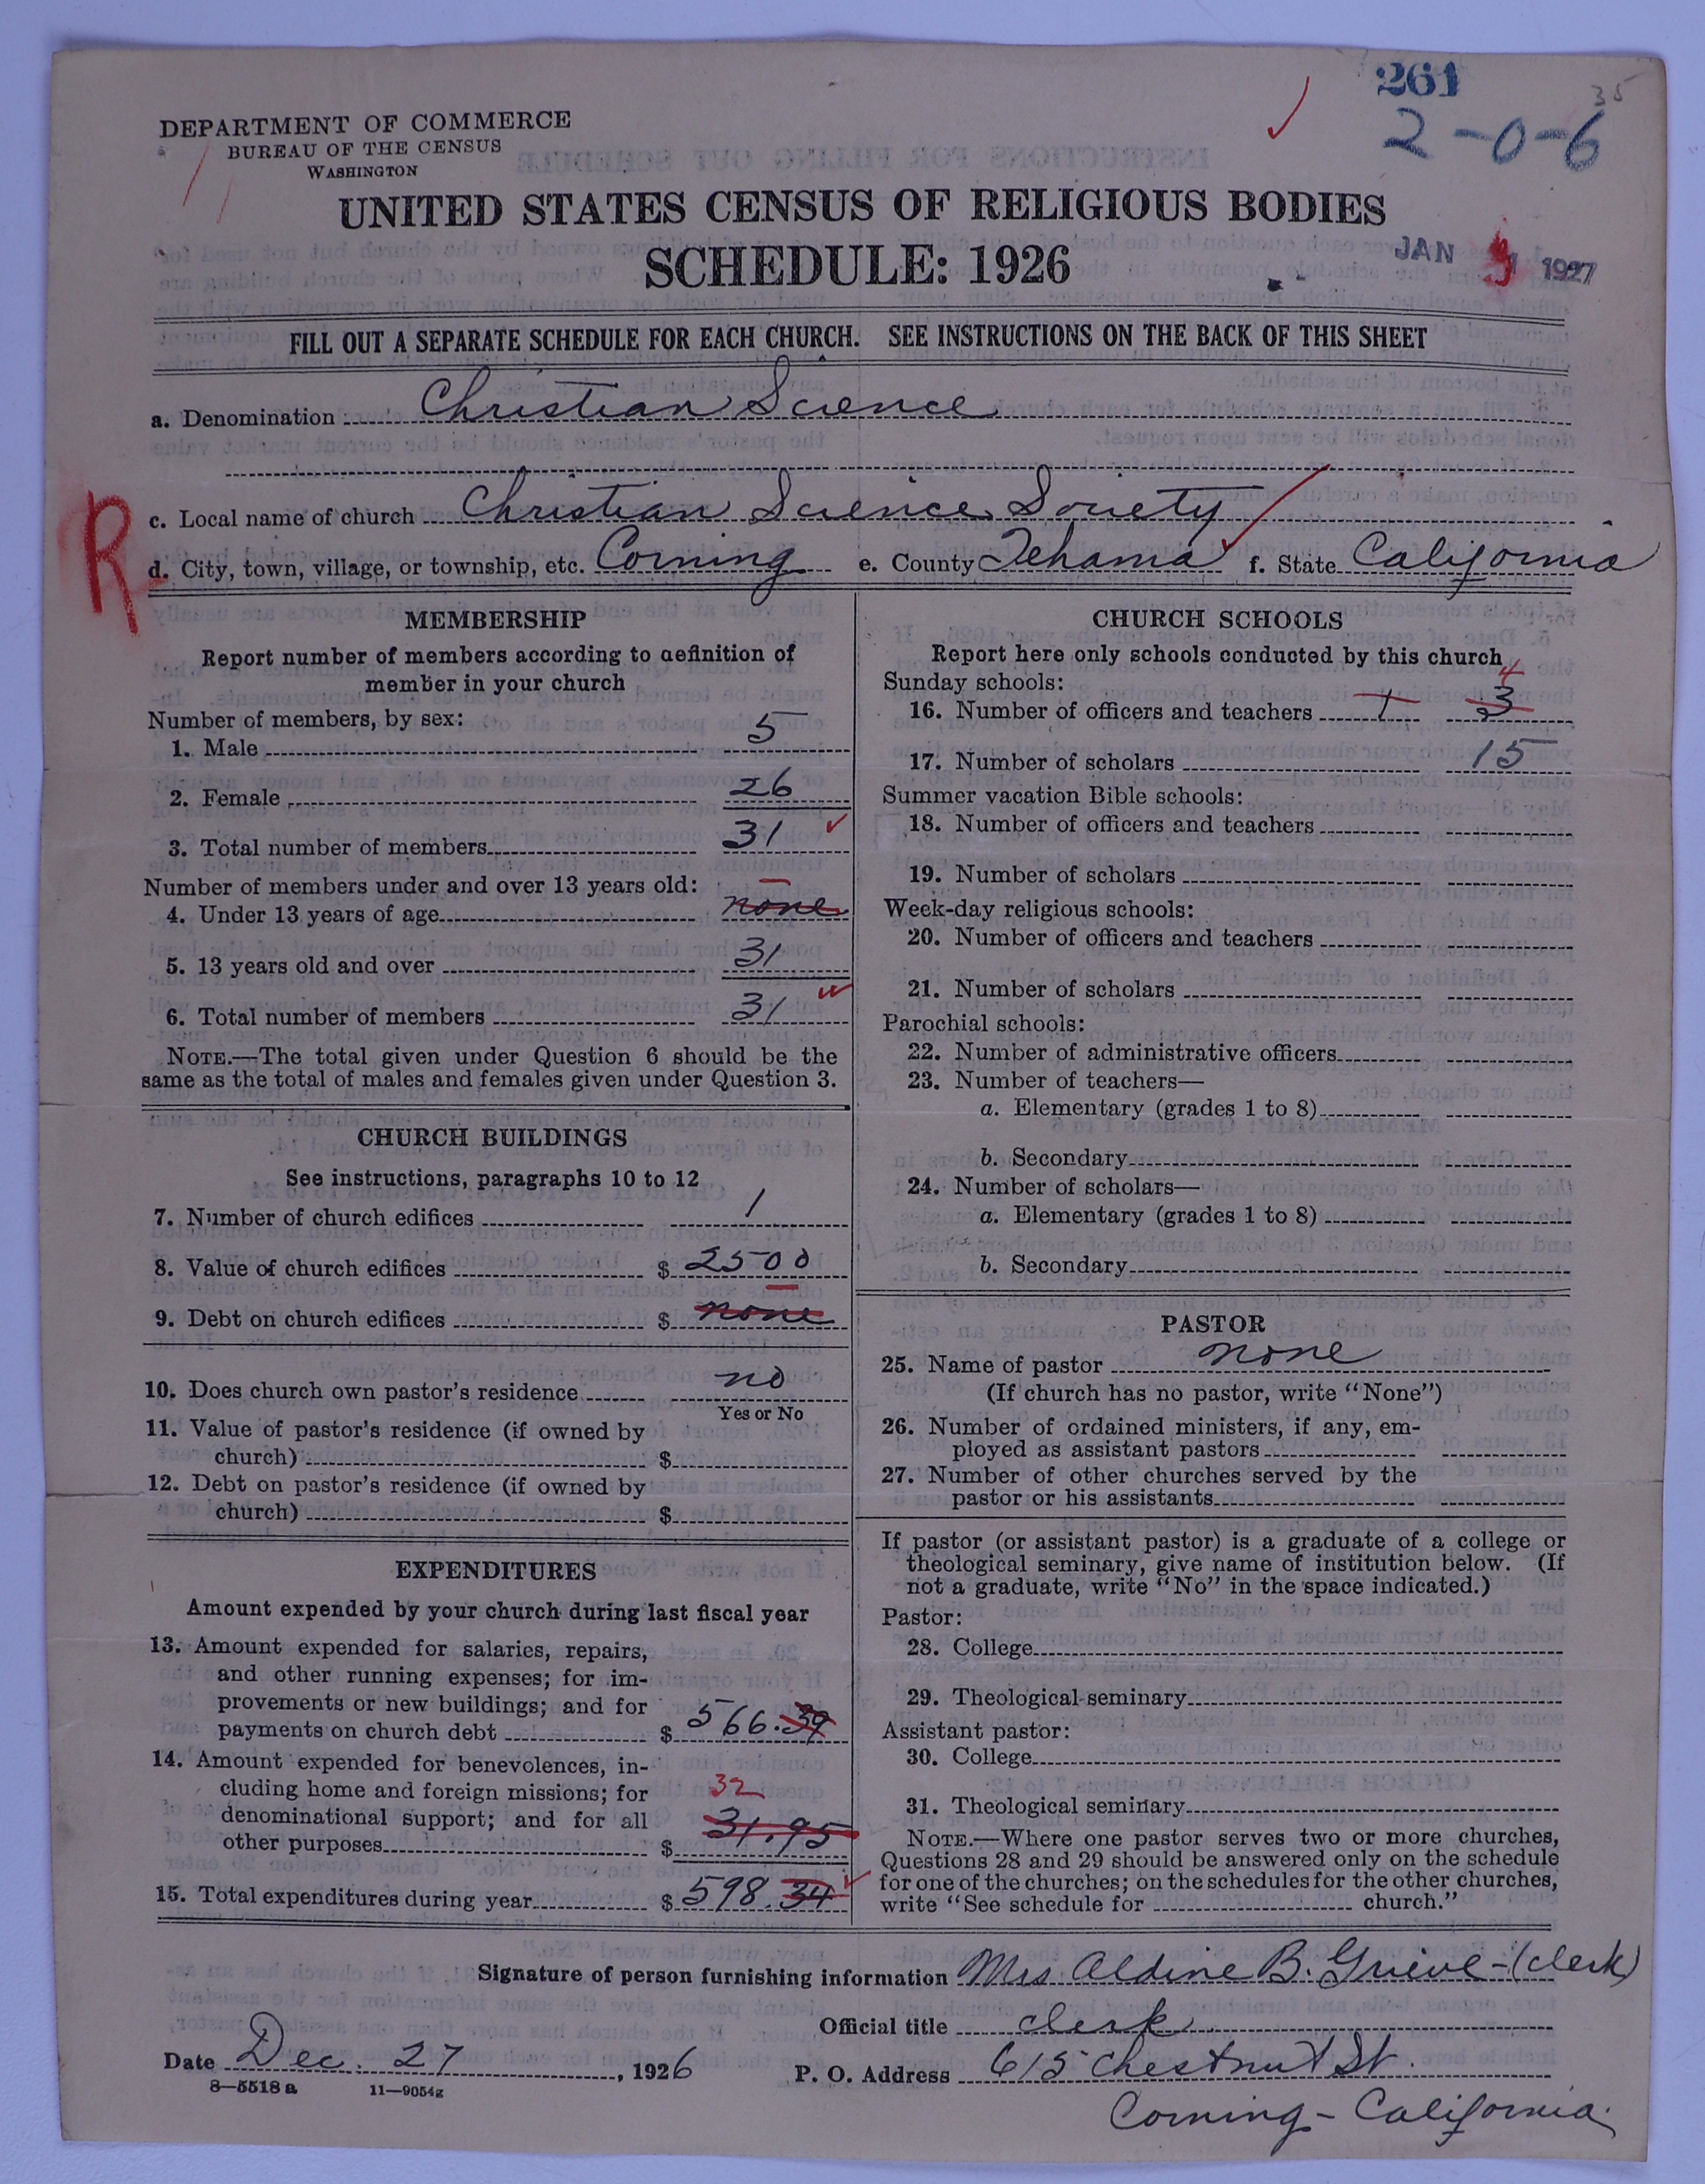 261
35
2-0-6
DEPARTMENT OF COMMERCE
BUREAU OF THE CENSUS
WASHINGTON
UNITED STATES CENSUS OF RELIGIOUS BODIES
SCHEDULE: 1926
JAN 1927
FILL OUT A SEPARATE SCHEDULE FOR EACH CHURCH. SEE INSTRUCTIONS ON THE BACK OF THIS SHEET
a. Denomination Christian Science
R
c. Local name of church Christian Science Society
d. City, town, village, or township, etc. Corning e. County Tehama f. State California
MEMBERSHIP
Report number of members according to definition of
member in your church
Number of members, by sex:
1. Male 5
2. Female 26
3. Total number of members 31
Number of members under and over 13 years old: –
4. Under 13 years of age none
5. 13 years old and over 31
6. Total number of members 31
NOTE.—The total given under Question 6 should be the
same as the total of males and females given under Question 3.
CHURCH BUILDINGS
See instructions, paragraphs 10 to 12
7. Number of church edifices 1
8. Value of church edifices $ 2500
9. Debt on church edifices $ none
10. Does church own pastor's residence no
Yes or No
11. Value of pastor's residence (if owned by
church) $
12. Debt on pastor's residence (if owned by
church) $
EXPENDITURES
Amount expended by your church during last fiscal year
13. Amount expended for salaries, repairs,
and other running expenses; for im-
provements or new buildings; and for
payments on church debt $ 566.39
14. Amount expended for benevolences, in-
cluding home and foreign missions; for 32
denominational support; and for all
other purposes $ 31.95
15. Total expenditures during year $ 598.34
CHURCH SCHOOLS
Report here only schools conducted by this church
Sunday schools: 4
16. Number of officers and teachers 1 3
17. Number of scholars 15
Summer vacation Bible schools:
18. Number of officers and teachers
19. Number of scholars
Week-day religious schools:
20. Number of officers and teachers
21. Number of scholars
Parochial schools:
22. Number of administrative officers
23. Number of teachers—
a. Elementary (grades 1 to 8)
b. Secondary
24. Number of scholars—
a. Elementary (grades 1 to 8)
b. Secondary
PASTOR
25. Name of pastor none
(If church has no pastor, write "None")
26. Number of ordained ministers, if any, em-
ployed as assistant pastors
27. Number of other churches served by the
pastor or his assistants
If pastor (or assistant pastor) is a graduate of a college or
theological seminary, give name of institution below. (If
not a graduate, write "No" in the space indicated.)
Pastor:
28. College
29. Theological seminary
Assistant pastor:
30. College
31. Theological seminary
NOTE.—Where one pastor serves two or more churches,
Questions 28 and 29 should be answered only on the schedule
for one of the churches; on the schedules for the other churches,
write "See schedule for church."
Signature of person furnishing information Mrs. Aldine B. Grieve-(clerk)
Official title clerk
Date Dec. 27, 1926 P. O. Address 615 Chestnut St.
8—5518 a 11—9054g
Corning - California.